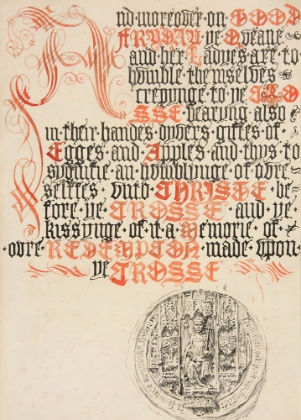 And·moreover·on·GOOD
FRYDAY·ye·Queane·
and·her·Ladyes·are·to
homble·themselves·
crepinge·to·ye·CRO
SSE·bearing·also·
in·their·handes·dyvers·giftes·of·
Egges·and·Apples·and·thys·to
sygnifie·an·homblynge·of·owre·
selffes·unto·CHRISTE·be
fore·ye·CROSSE·and·ye·
kissynge·of·it·a·Memorie·of·
·owre·REDEMPTON·made·upon·
ye·CROSSE